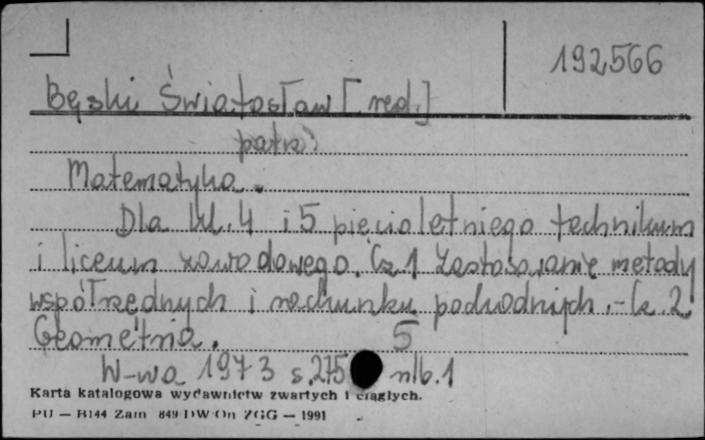 192566
Bęski Światosław [red.]
patrz
Matematyka.
Dla kl. 4 i 5 pięcioletniego technikum
i liceum zawodowego. Cz. 1 Zastosowanie metody
współrzędnych i rachunku pochodnych. - Cz. 2.
Geometria. 5
W-wa 1973 s. 275 nlb. 1
Karta katalogowa wydawnictw zwartych i ciągłych.
PU — B144 Zam 849 DW On ZGG — 1991